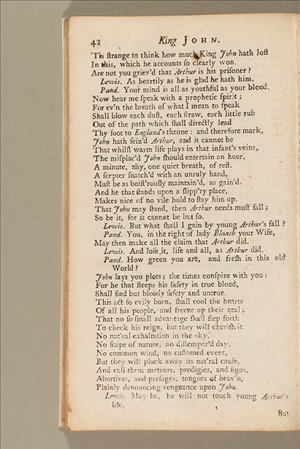 42 King JOHN.
'Tis ſtrange to think how much King John hath loſt
In this, which he accounts ſo clearly won.
Are not you griev'd that Arthur is his priſoner?
Lewis. As heartily as he is glad he hath him.
Pand. Your mind is all as youthful as your blood.
Now hear me ſpeak with a prophetic ſpirit;
For ev'n the breath of what I mean to ſpeak
Shall blow each duſt, each ſtraw, each little rub
Out of the path which ſhall directly lead
Thy foot to England's throne: and therefore mark,
John hath ſeiz'd Arthur, and it cannot be
That whilſt warm life plays in that infant's veins,
The miſplac'd John ſhould entertain an hour,
A minute, nay, one quiet breath, of reſt.
A ſcepter ſnatch'd with an unruly hand,
Muſt be as boiſt'rouſly maintain'd, as gain'd.
And he that ſtands upon a ſlipp'ry place,
Makes nice of no vile hold to ſtay him up.
That John may ſtand, then Arthur needs muſt fall;
So be it, for it cannot be but ſo.
Lewis. But what ſhall I gain by young Arthur's fall?
Pand. You, in the right of lady Blanch your Wife,
May then make all the claim that Arthur did.
Lewis. And loſe it, life and all, as Arthur did.
Pand. How green you are, and freſh in this old
World?
John lays you plots; the times conſpire with you:
For he that ſteeps his ſafety in true blood,
Shall find but bloody ſafety and untrue.
This act ſo evily born, ſhall cool the hearts
Of all his people, and freeze up their zeal;
That no ſo ſmall advantage ſhall ſtep forth
To check his reign, but they will cheriſh it.
No nat'ral exhalation in the sky,
No ſcape of nature, no diſtemper'd day,
No common wind, no cuſtomed event,
But they will pluck away its nat'ral cauſe,
And call them meteors, prodigies, and ſigns,
Abortives, and preſages, tongues of heav'n,
Plainly denouncing vengeance upon John.
Lewis. May be, he will not touch young Arthur's
life,
But